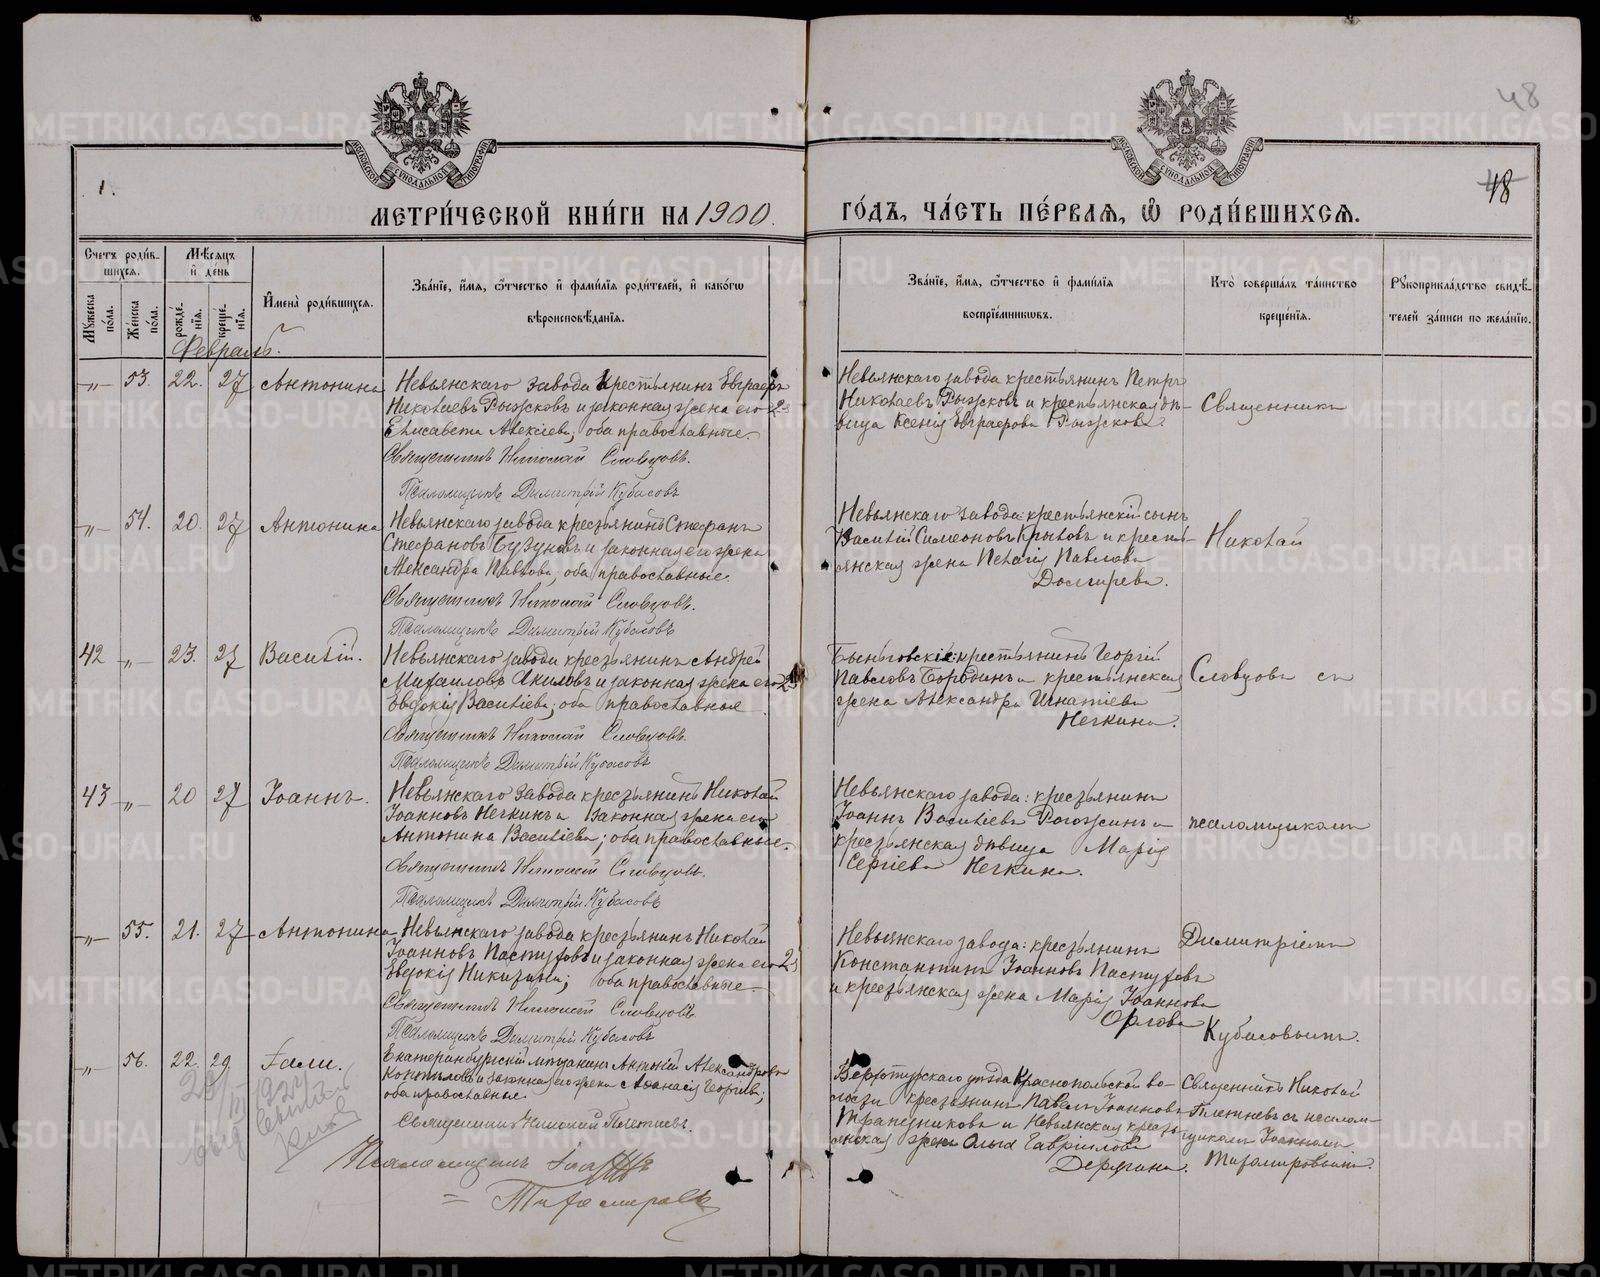 48
1.
48
МЕТРИ́ЧЕСКОЙ КНИ́ГИ НА 1900
ГО́ДЪ, ЧА́СТЬ ПЕ́РВАЯ, Ѡ҆ РОДИ́ВШИХСЯ.
Счетъ роди́в-
шихся.
Мѣ́сяцъ
и҆ де́нь
Мꙋжеска по́ла.
Же́нска по́ла.
рожде́-
нїя.
креще́-
нїя.
И҆мена̀ роди́вшихся.
Зва́нїе, и҆́мя, ѻ҆́тчество и҆ фами́лїя роди́телей, и҆ како́гѡ
вѣроисповѣ́данїя.
Зва́нїе, и҆́мя, ѻ҆́тчество и҆ фами́лїя
воспрїе́мникѡвъ.
Кто̀ соверша́лъ та́инство
креще́нїя.
Рꙋкоприкла́дство свидѣ́-
телей за́писи по жела́нїю.
Февраль.
„ 53. 22. 27 Антонина
Невьянскаго завода крестьянинъ Евграфъ
Николаевъ Рыжковъ и законная жена его
Елисавета Алексіева, оба православные.
Священникъ Николай Словцовъ.
Псаломщикъ Димитрій Кубасовъ
Невьянскаго завода крестьянинъ Петръ
Николаевъ Рыжковъ и крестьянская дѣ-
вица Ксенія Евграфова Рыжкова.
Священникъ
„ 54. 20. 27 Антонина
Невьянскаго завода крестьянинъ Стефанъ
Стефановъ и законная его жена
Александра Павлова, оба православные.
Священникъ Николай Словцовъ.
Псаломщикъ Димитрій Кубасовъ
Невьянскаго завода: крестьянскій сынъ
Василій Симеоновъ и кресть-
янская жена Пелагія Павлова
Долгирева.
Николай
42 „ 23. 27 Василій.
Невьянскаго завода крестьянинъ Андрей
Михаиловъ и законная жена его
Евдокія Василіева; оба православные
Священникъ Николай Словцовъ.
Псаломщикъ Димитрій Кубасовъ
крестьянинъ Георгій
Павловъ Бородинъ и крестьянская
жена Александра Игнатіева
Нечкина.
Словцовъ съ
43 „ 20 27 Іоаннъ.
Невьянскаго завода крестьянинъ Николай
Іоанновъ Нечкинъ и законная жена его
Антонина Василіева; оба православные.
Священникъ Николай Словцовъ.
Псаломщикъ Димитрій Кубасовъ
Невьянскаго завода: крестьянинъ
Іоаннъ Василіевъ Рогожинъ и
крестьянская дѣвица Марія
Сергіева Нечкина.
псаломщикомъ
„ 55. 21. 27 Антонина
Невьянскаго завода крестьянинъ Николай
Іоанновъ Пастуховъ и законная жена его
Евдокія оба православные
Священникъ Николай Словцовъ
Псаломщикъ Димитрій Кубасовъ
Невьянскаго завода: крестьянинъ
Константинъ Іоанновъ Пастуховъ
и крестьянская жена Марія Іоаннова
Орлова
Димитріемъ
Кубасовымъ.
„ 56. 22. 29.
Екатеринбургскій мѣщанинъ Антоній Александровъ
и законная его жена Аѳанасія Георгіева;
оба православные.
Священникъ Николай Плетневъ.
Псаломщикъ
Тихомировъ
Верхотурскаго уѣзда Краснопольской во-
лости крестьянинъ Павелъ Іоанновъ
Трапезниковъ и Невьянская кресть-
янская жена Ольга Гавріилова
Дерягина.
Священникъ Николай
Плетневъ съ псалом-
щикомъ Іоанномъ
Тихомировымъ.